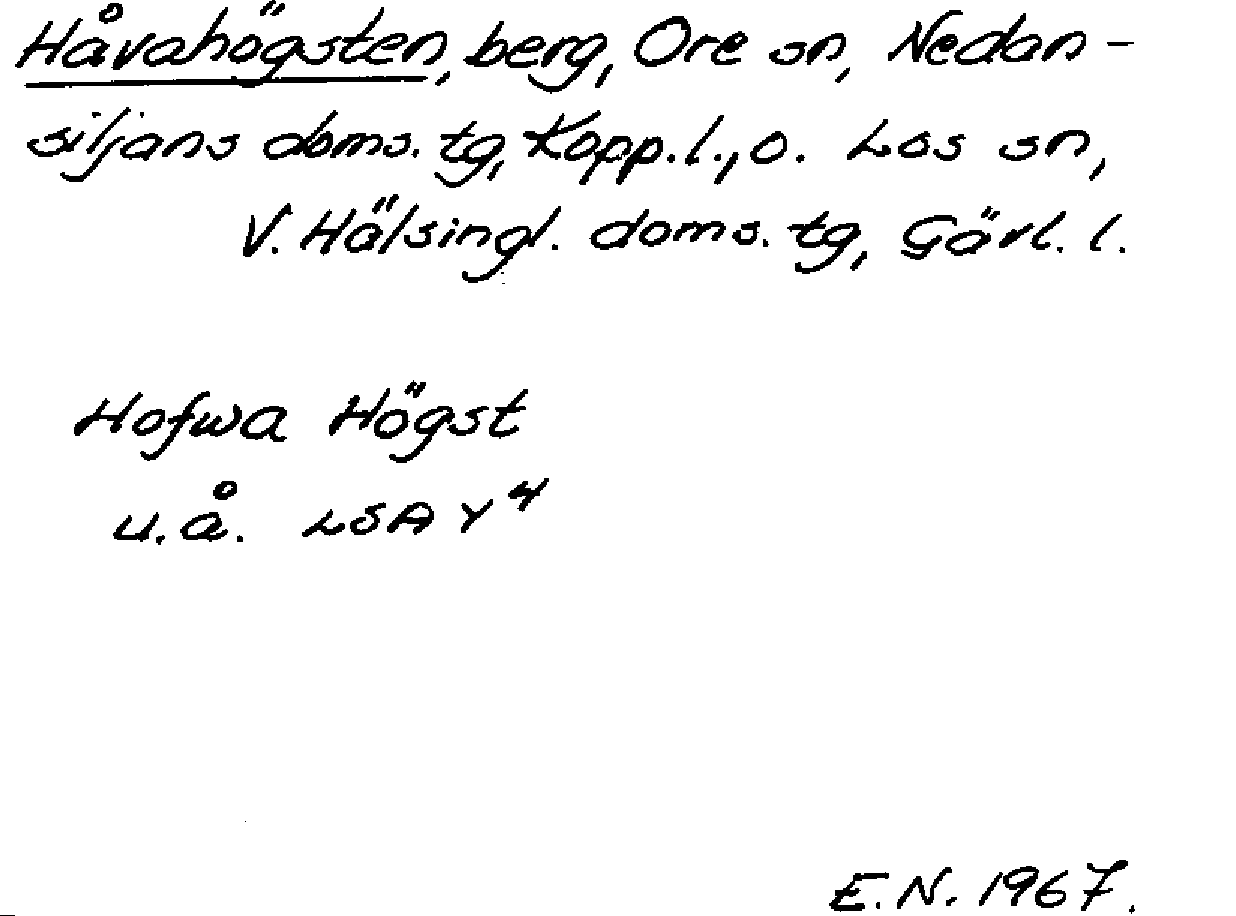 Håvahögsten, berg, Ore sn, Nedan-
siljans doms. tg, Kopp. l., o. Los sn,
V. Hälsingl. doms. tg, Gävl. l.
Hofwa Högst
u.å. LSA Y4
E.N. 1967.